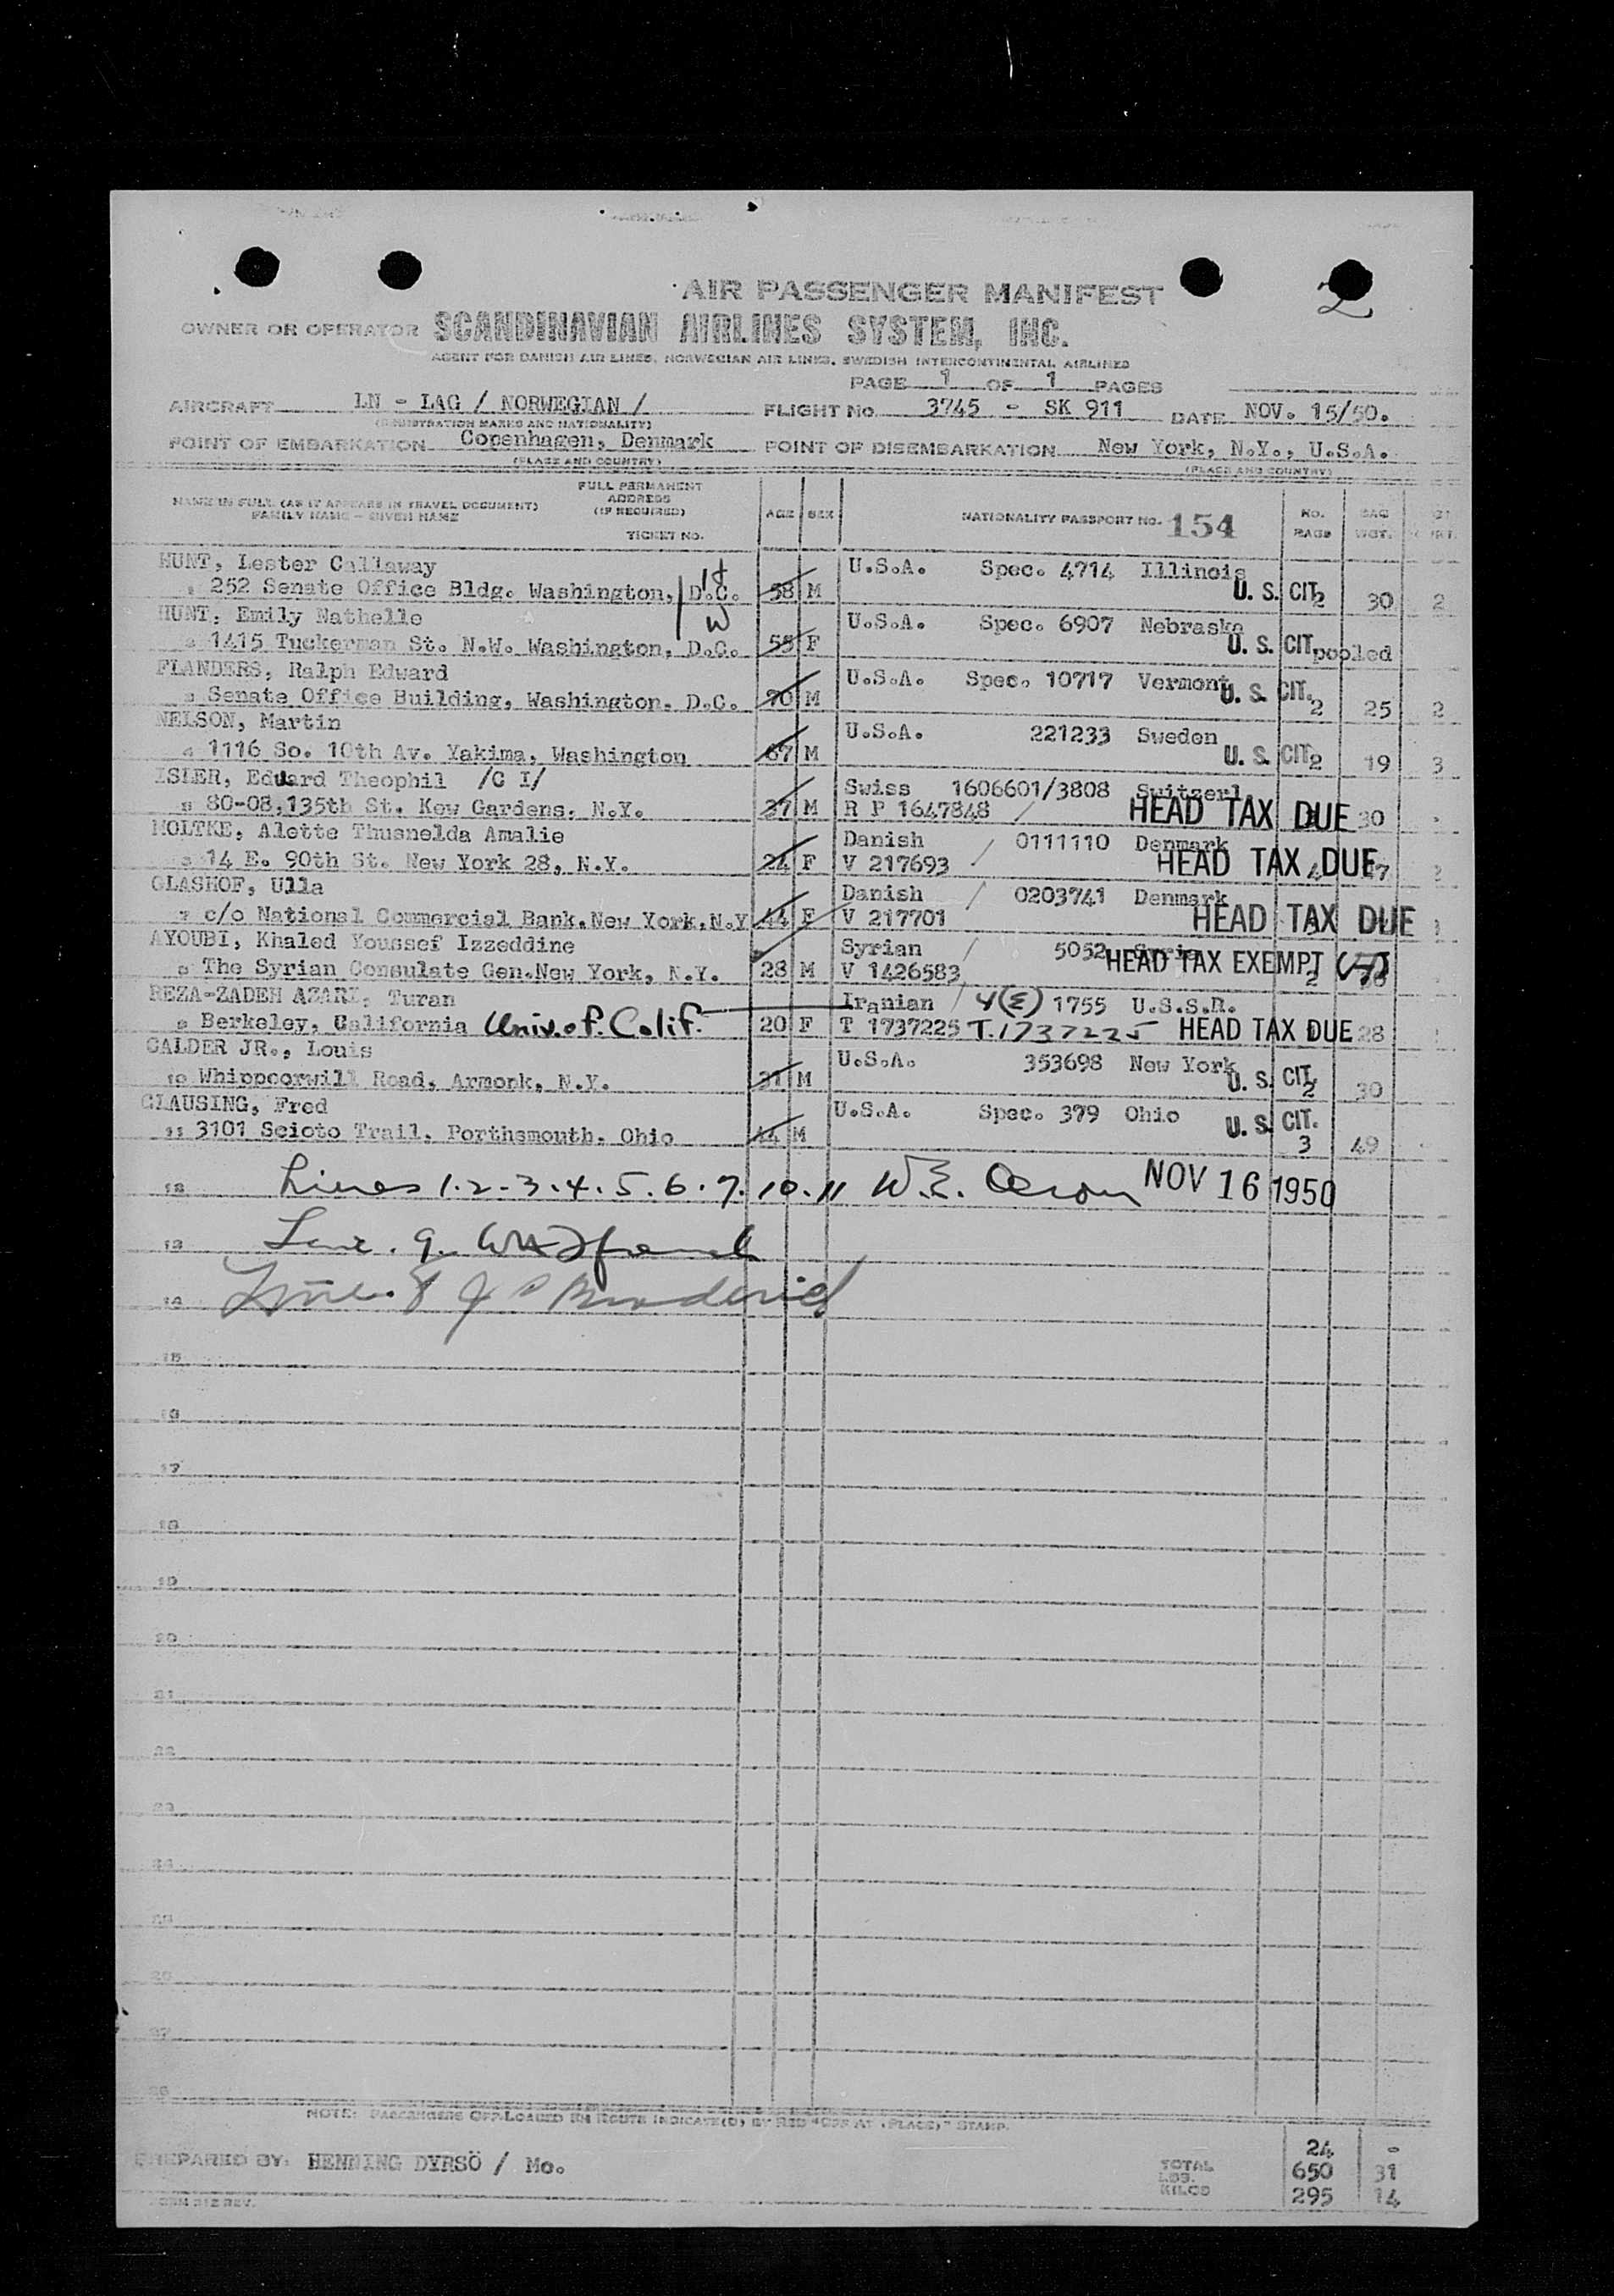 2
AIR PASSENGER MANIFEST
OWNER OR OPERATOR SCANDINAVIAN AIRLINES SYSTEM, INC.
AGENT FOR DANISH AIR LINES, NORWEGIAN AIR LINES, SWEDISH INTERCONTINENTAL AIRLINES
PAGE 1 OF 1 PAGES
AIRCRAFT LN - LAG / NORWEGIAN / FLIGHT No 3745 - SK 911 DATE NOV. 15/50.
(REGISTRATION MARKS AND NATIONALITY)
POINT OF EMBARKATION Copenhagen, Denmark POINT OF DISEMBARKATION New York, N.Y., U.S.A.
(PLACE AND COUNTRY) (PLACE AND COUNTRY)
NAME IN FULL (AS IT APPEARS IN TRAVEL DOCUMENT) FAMILY NAME - GIVEN NAME FULL PERMANENT ADDRESS (IF REQUIRED) TICKET NO. AGE SEX NATIONALITY PASSPORT NO. 154 No. BAGS BAG WGT.
HUNT, Lester Callaway U.S.A. Spec. 4714 Illinois
252 Senate Office Bldg. Washington, D.C. 58 M U. S. CIT. 2 30 2
HUNT, Emily Nathelle W U.S.A. Spec. 6907 Nebraska
1415 Tuckerman St. N.W. Washington, D.C. 55 F U. S. CIT. pooled
FLANDERS, Ralph Edward U.S.A. Spec. 10717 Vermont
Senate Office Building, Washington. D.C. 70 M U. S. CIT. 2 25 2
NELSON, Martin U.S.A. 221233 Sweden
1116 So. 10th Av. Yakima, Washington 67 M U. S. CIT. 2 19 3
ISLER, Eduard Theophil /C I/ Swiss 1606601/3808 Switzerl.
80-08,135th St. Kew Gardens, N.Y. 37 M R P 1647848 / HEAD TAX DUE 30
MOLTKE, Alette Thusnelda Amalie Danish 0111110 Denmark
14 E. 90th St. New York 28, N.Y. 24 F V 217693 / HEAD TAX DUE
GLASHOF, Ulla Danish / 0203741 Denmark
7 c/o National Commercial Bank.New York.N.Y 44 F V 217701 HEAD TAX DUE
AYOUBI, Khaled Youssef Izzeddine Syrian / 5052 Syria
The Syrian Consulate Gen.New York, N.Y. 28 M V 1426583 HEAD TAX EXEMPT 2
REZA-ZADEH AZARI, Turan Iranian / 4(E) 1755 U.S.S.R.
Berkeley, California Univ. of. Calif. 20 F T 1737225 T.1737225 HEAD TAX DUE 28
CALDER JR., Louis U.S.A. 353698 New York
10 Whippoorwill Road, Armonk, N.Y. 31 M U. S. CIT. 2 30
CLAUSING, Fred U.S.A. Spec. 379 Ohio
11 3101 Scioto Trail. Porthsmouth. Ohio 44 M U. S. CIT. 3 49
12 Lines 1.2-3.4.5.6.7.10.11 W.E. NOV 16 1950
13 Line. 9.
14 Line. 8 J
15
16
17
18
19
20
21
22
23
24
25
26
27
28
NOTE: PASSENGERS OFF-LOADED EN ROUTE INDICATE(D) BY RED "OFF AT (PLACE)" STAMP.
PREPARED BY: HENNING DYRSÖ / Mo.
24 -
TOTAL LBS. 650 31
KILOS 295 14
FORM 312 REV.